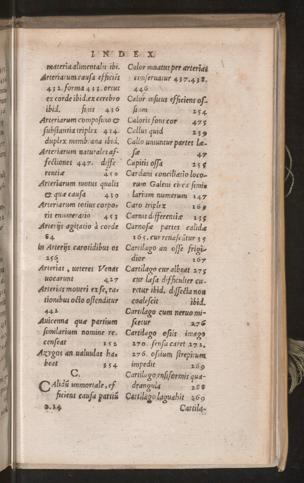 INDEX
materia alimentalis ibi.
Arteriarum causa efficiēs
432. forma 433. ortus
ex corde ibid. ex cerebro
ibid. finis 436
Arteriarum compositio &
substantia triplex 434
duplex membrana ibid.
Arteriarum naturales af-
fectiones 447. diffe
rentiæ 450
Arteriarum motus qualis
& quæ causa 439
Arteriarum totius corpo-
ris enumeratio 453
Arterijs agitatio à corde
84
in Arterijs carotidibus os
256
Arteriæ, veteres Venæ
vocarunt 427
Arterias moueri ex se, ra-
tionibus octo ostenditur
442
Auicenna quæ partium
similarium nomine re-
censeat 152
Azygos an valuulas ha-
beat 354
C.
Calidū immortale, ef
ficiens causa partiū
2.14
Calor innatus per arterias
conseruatur 437.438.
446
Calor insitus efficiens os-
sium 254
Caloris fons cor 475
Callus quid 259
Callo vniuntur partes læ-
sæ 47
Capitis ossa 255
Cardani conciliatio loco-
rum Galeni circa simi-
larium numerum 147
Caro triplex 169
Carnis differentiæ 155
Carnosæ partes calidæ
165. cur renascātur 35
Cartilago an osse frigi-
dior 167
Cartilago cur albeat 275
cur læsa difficulter cu-
retur ibid. dissecta non
coalescit ibid.
Cartilago cum neruo mi-
scetur 276
Cartilago ossis imago
270. sensu caret 272.
276. ossium strepitum
impedit 269
Cartilago ensiformis qua-
drangula 268
Cartilago leguabit 260
Cartila-